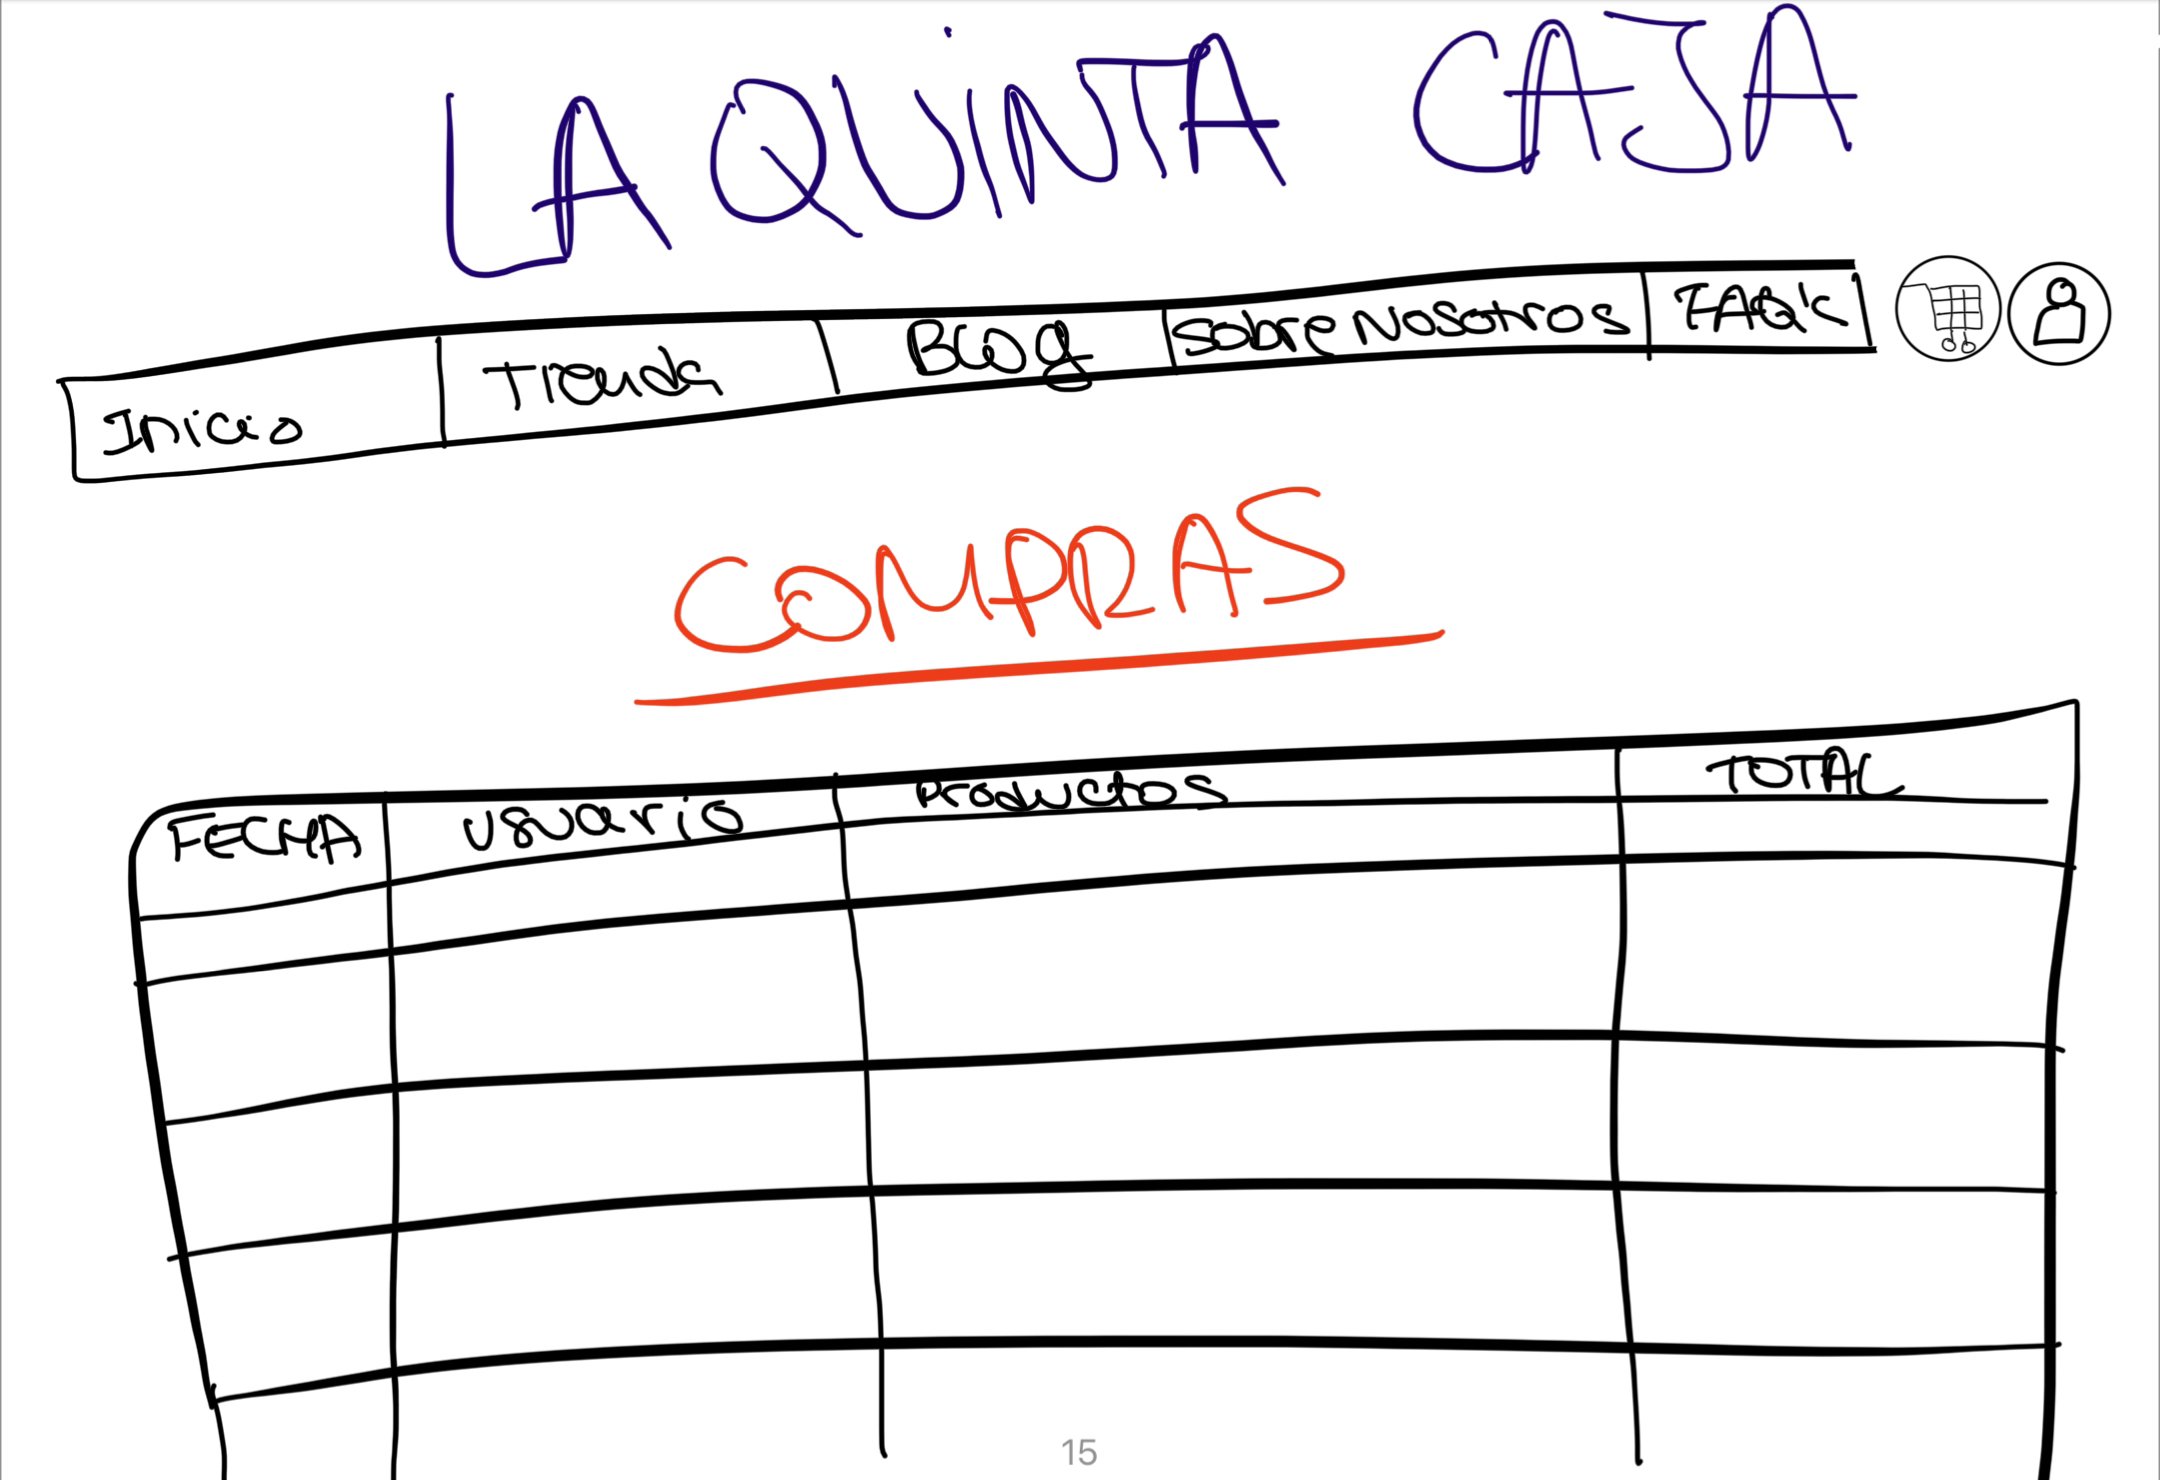 LA QUINTA CAJA
Inicio Tienda Blog Sobre Nosotros FAQ's
COMPRAS
FECHA Usuario Productos TOTAL
15